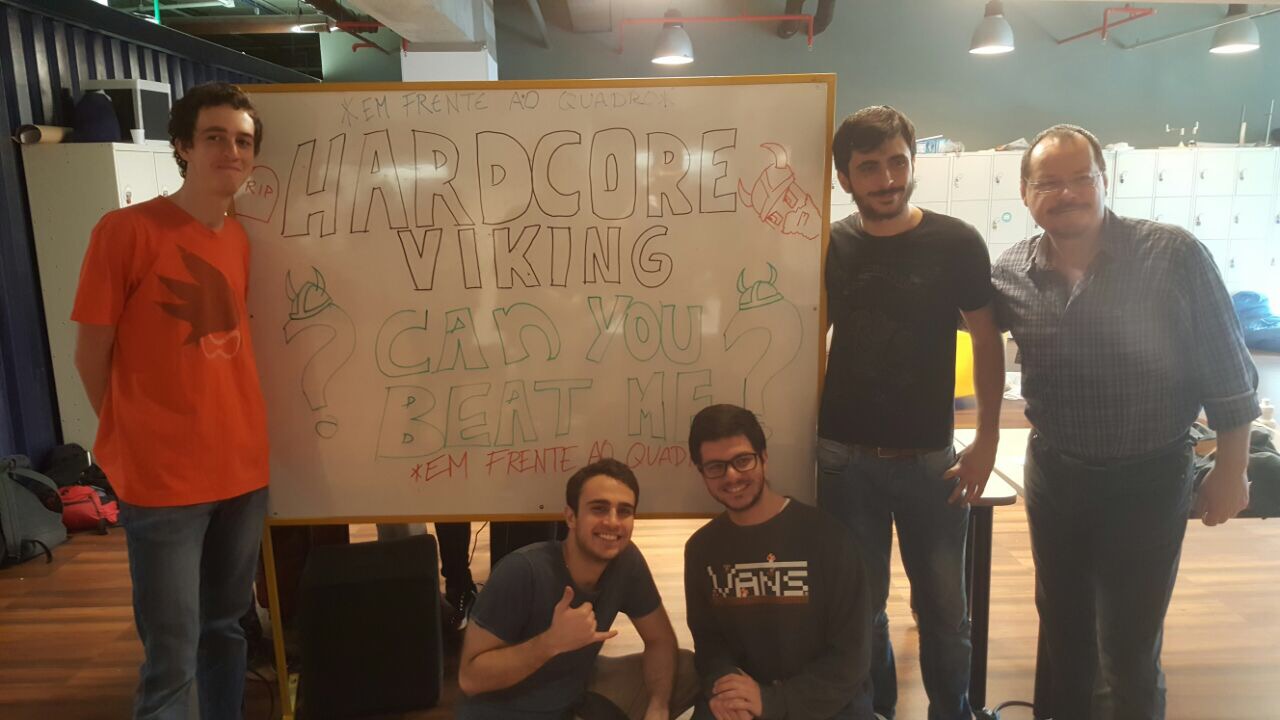 *EM FRENTE AO QUADRO*
RIP
HARDCORE
VIKING
? CAN YOU ?
BEAT ME
*EM FRENTE AO
VANS